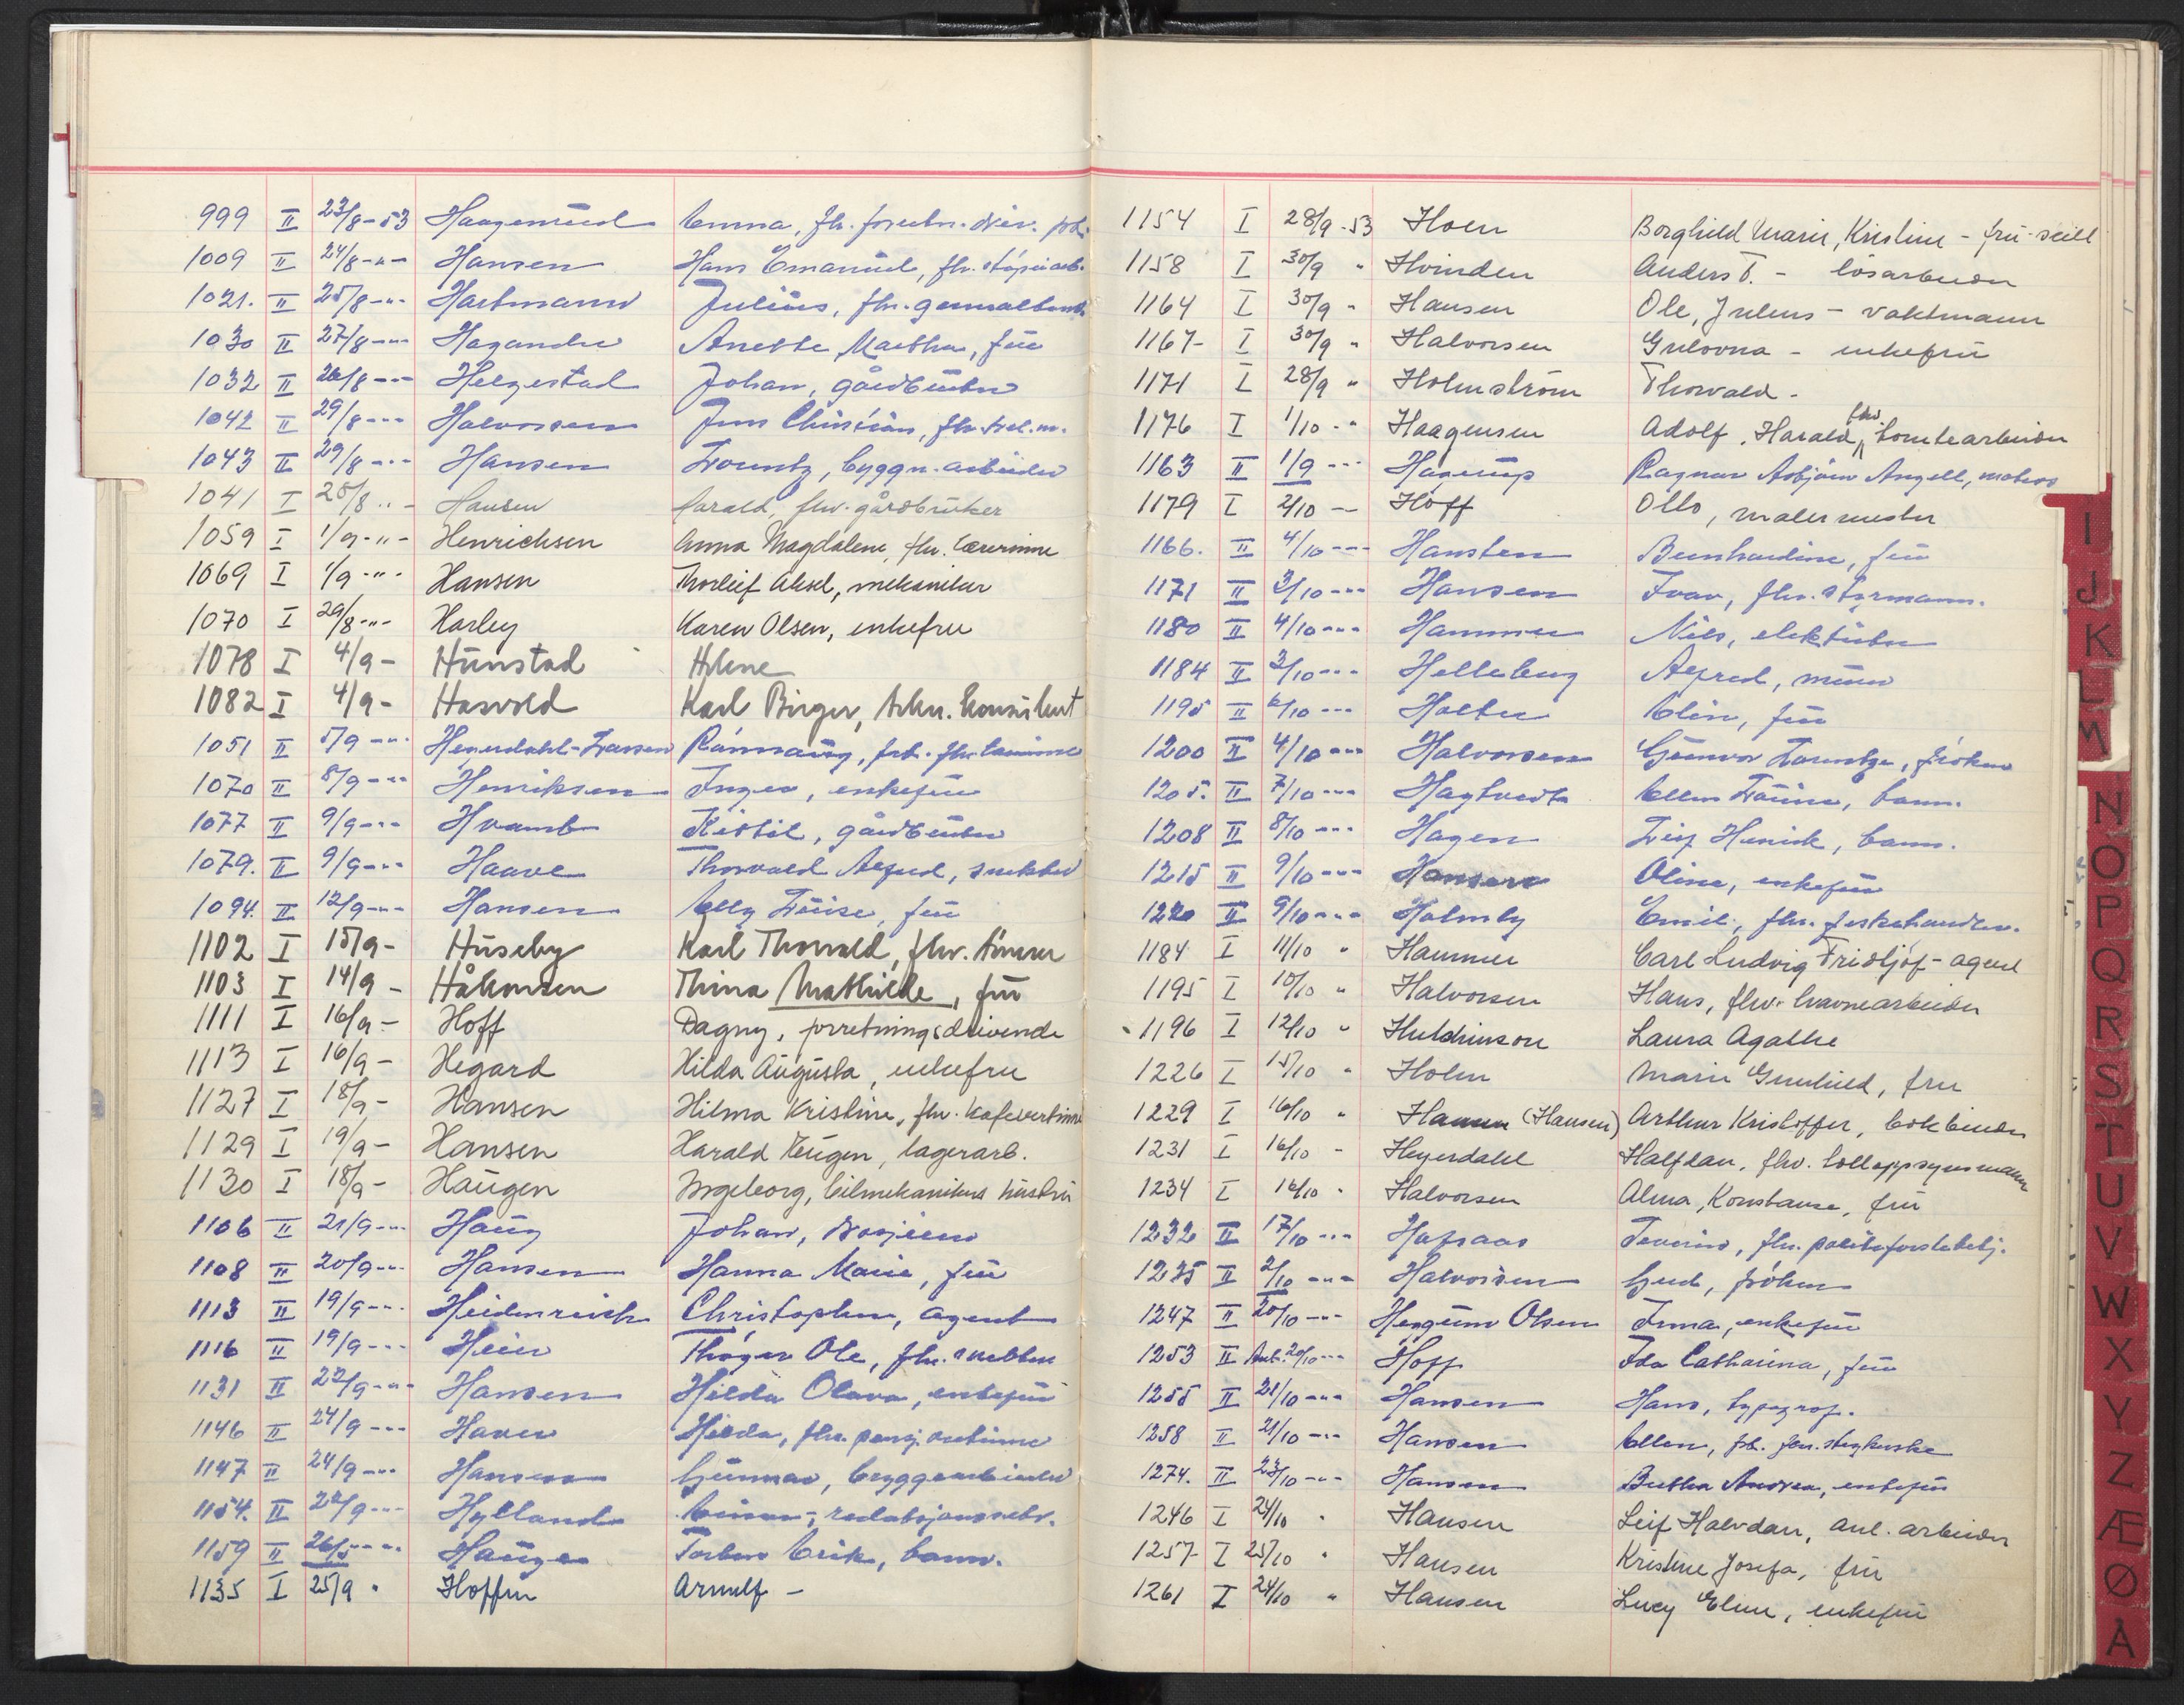 999 II 23/8-53 Haagensrud Emma, fhv. forretn. driv.
1009 II 24/8-"- Hansen Hans Emanuel, fhv. støperiarb.
1021. II 25/8-"- Hartmann Julius, fhv.
1030 II 27/8-"- Hagandre Anette Martha, frü
1032 II 26/8-"- Helgestad Johan, gårdbrüker
1042 II 29/8-"- Halvorsen Jens Christian, fhv.
1043 II 29/8-"- Hansen Lorentz, byggn. arbeider
1041 I 28/8 "- Hansen Harald, fhv. gårdbrüker
1059 I 1/9-"- Henrichsen Anna Magdalene, fhv. lærerinne
1069 I 1/9-"- Hansen Thorleif Aksel, mekaniker
1070 I 29/8-"- Harley Karen Olsen, enkefru
1078 I 4/9- Hünstad Helene
1082 I 4/9- Hasvold Karl Birger, tekn. konsulent
1051 II 5/9-"- Heyerdahl-Larsen Rannaüg, frk. fhv. lærerinne
1070 II 8/9-"- Henriksen Inger, enkefrü
1077 II 9/9-"- Hvamb Kittil, gårdbrüker
1079. II 9/9-"- Haave Thorvald Alfred, snekker
1094. II 12/9-"- Hansen Elly Loüise, frü
1102 I 15/9- Hüseby Karl Thorvald, fhv. tömrer
1103 I 14/9- Håkonsen Thina Mathilde, frü
1111 I 16/9- Hoff Dagny, forretningsdrivende
1113 I 16/9- Hegard Hilda Aügüsta, enkefru
1127 I 18/9- Hansen Hilma Kristine, fhv. kafévertinne
1129 I 19/9- Hansen Harald Eügen, lagerarb.
1130 I 18/9- Haügen Ingeborg, bilmekanikers hüstrü
1106 II 21/9-"- Haüg Johan,
1108 II 20/9-"- Hansen Hanna Marie, frü
1113 II 19/9-"- Heidenreich Christopher, agent
1116 II 19/9-"- Heier Thøger Ole, fhv. snekker
1131 II 22/9-"- Hansen Hilda Olava, enkefrü
1146 II 24/9-"- Haver Hilda, fhv. pensj. vertinne
1147 II 24/9-"- Hansen Günnar, bryggearbeider
1154. II 22/9-"- Hylland Einar, redaksjonssekr.
1159 II 26/5-"- Haüge Torben Erik, barn.
1135 I 25/9 " Hoffen Arnulf -
1154 I 28/9-53 Holm Borghild Marie, Kristine - frü-seilt
1158 I 30/9 " Hvinden Anders T. - løsarbeider
1164 I 30/9 " Hansen Ole, Julius - vaktmann
1167- I 30/9 " Halvorsen Gulovna - enkefrü
1171 I 28/9 " Holmström Thorvald -
1176 I 1/10 - " Haagensen Adolf, Harald, fhv. tomtearbeider
1163 II 1/9 -"- Hagerup Ragnar Asbjørn Angell, matros
1179 I 2/10 - Hoff Otto, malermester
1166. II 4/10-"- Hansten Bernhardine, frü
1171 II 3/10-"- Hansen Ivar, fhv. styrmann.
1180 II 4/10-"- Hammer Nils, elektriker
1184 II 3/10-"- Helleberg Alfred, mürer
1195 II 6/10-"- Holter Elin, frü
1200 II 4/10-"- Halvorsen Günvor Lorentze, frøken
1205. II 7/10-"- Hagtvedt Ellen Loüise, barn.
1208 II 8/10-"- Hagen Leif Henrik, barn.
1215 II 9/10-"- Hansen Oline, enkefrü
1220 II 9/10-"- Holmby Emil, fhv. fiskehandler.
1184 I 11/10 " Hammer Carl Ludvig Fridtjof - agent
1195 I 10/10 " Halvorsen Hans, fhv. havnearbeider
1196 I 12/10 " Hutchinson Laura Agathe
1226 I 15/10 " Holm Marie Gunhild, fru
1229 I 16/10 " Hansen (Hansen) Arthur Kristoffer, bokbinder
1231 I 16/10 - Heyerdahl Halfdan, fhv. tolloppsynsmann
1234 I 16/10 " Halvorsen Alma, Konstanse, frü
1232 II 17/10-"- Hafsaas Severin, fhv. politiforstebetj.
1235 II 2/10-"- Halvorsen Gerd, frøken
1247 II 20/10-"- Hergünn Olsen Irma, enkefrü
1253 II Ank. 20/10-"- Hoff Ida Catharina, frü
1255 II 21/10-"- Hansen Hans, typograf.
1258 II 21/10-"- Hansen Ellen, frk. fhv. strykerske
1274. II 23/10-"- Hansen Bertha Andrea, enkefrü
1246 I 24/10 " Hansen Leif Halvdan, anl. arbeider
1257- I 25/10 " Hansen Kristine Josefa, frü
1261 I 24/10 " Hansen Lucy Eline, enkefrü
I
J
K
L
M
N
O
P
Q
R
S
T
U
V
W
X
Y
Z
Æ
Ø
A